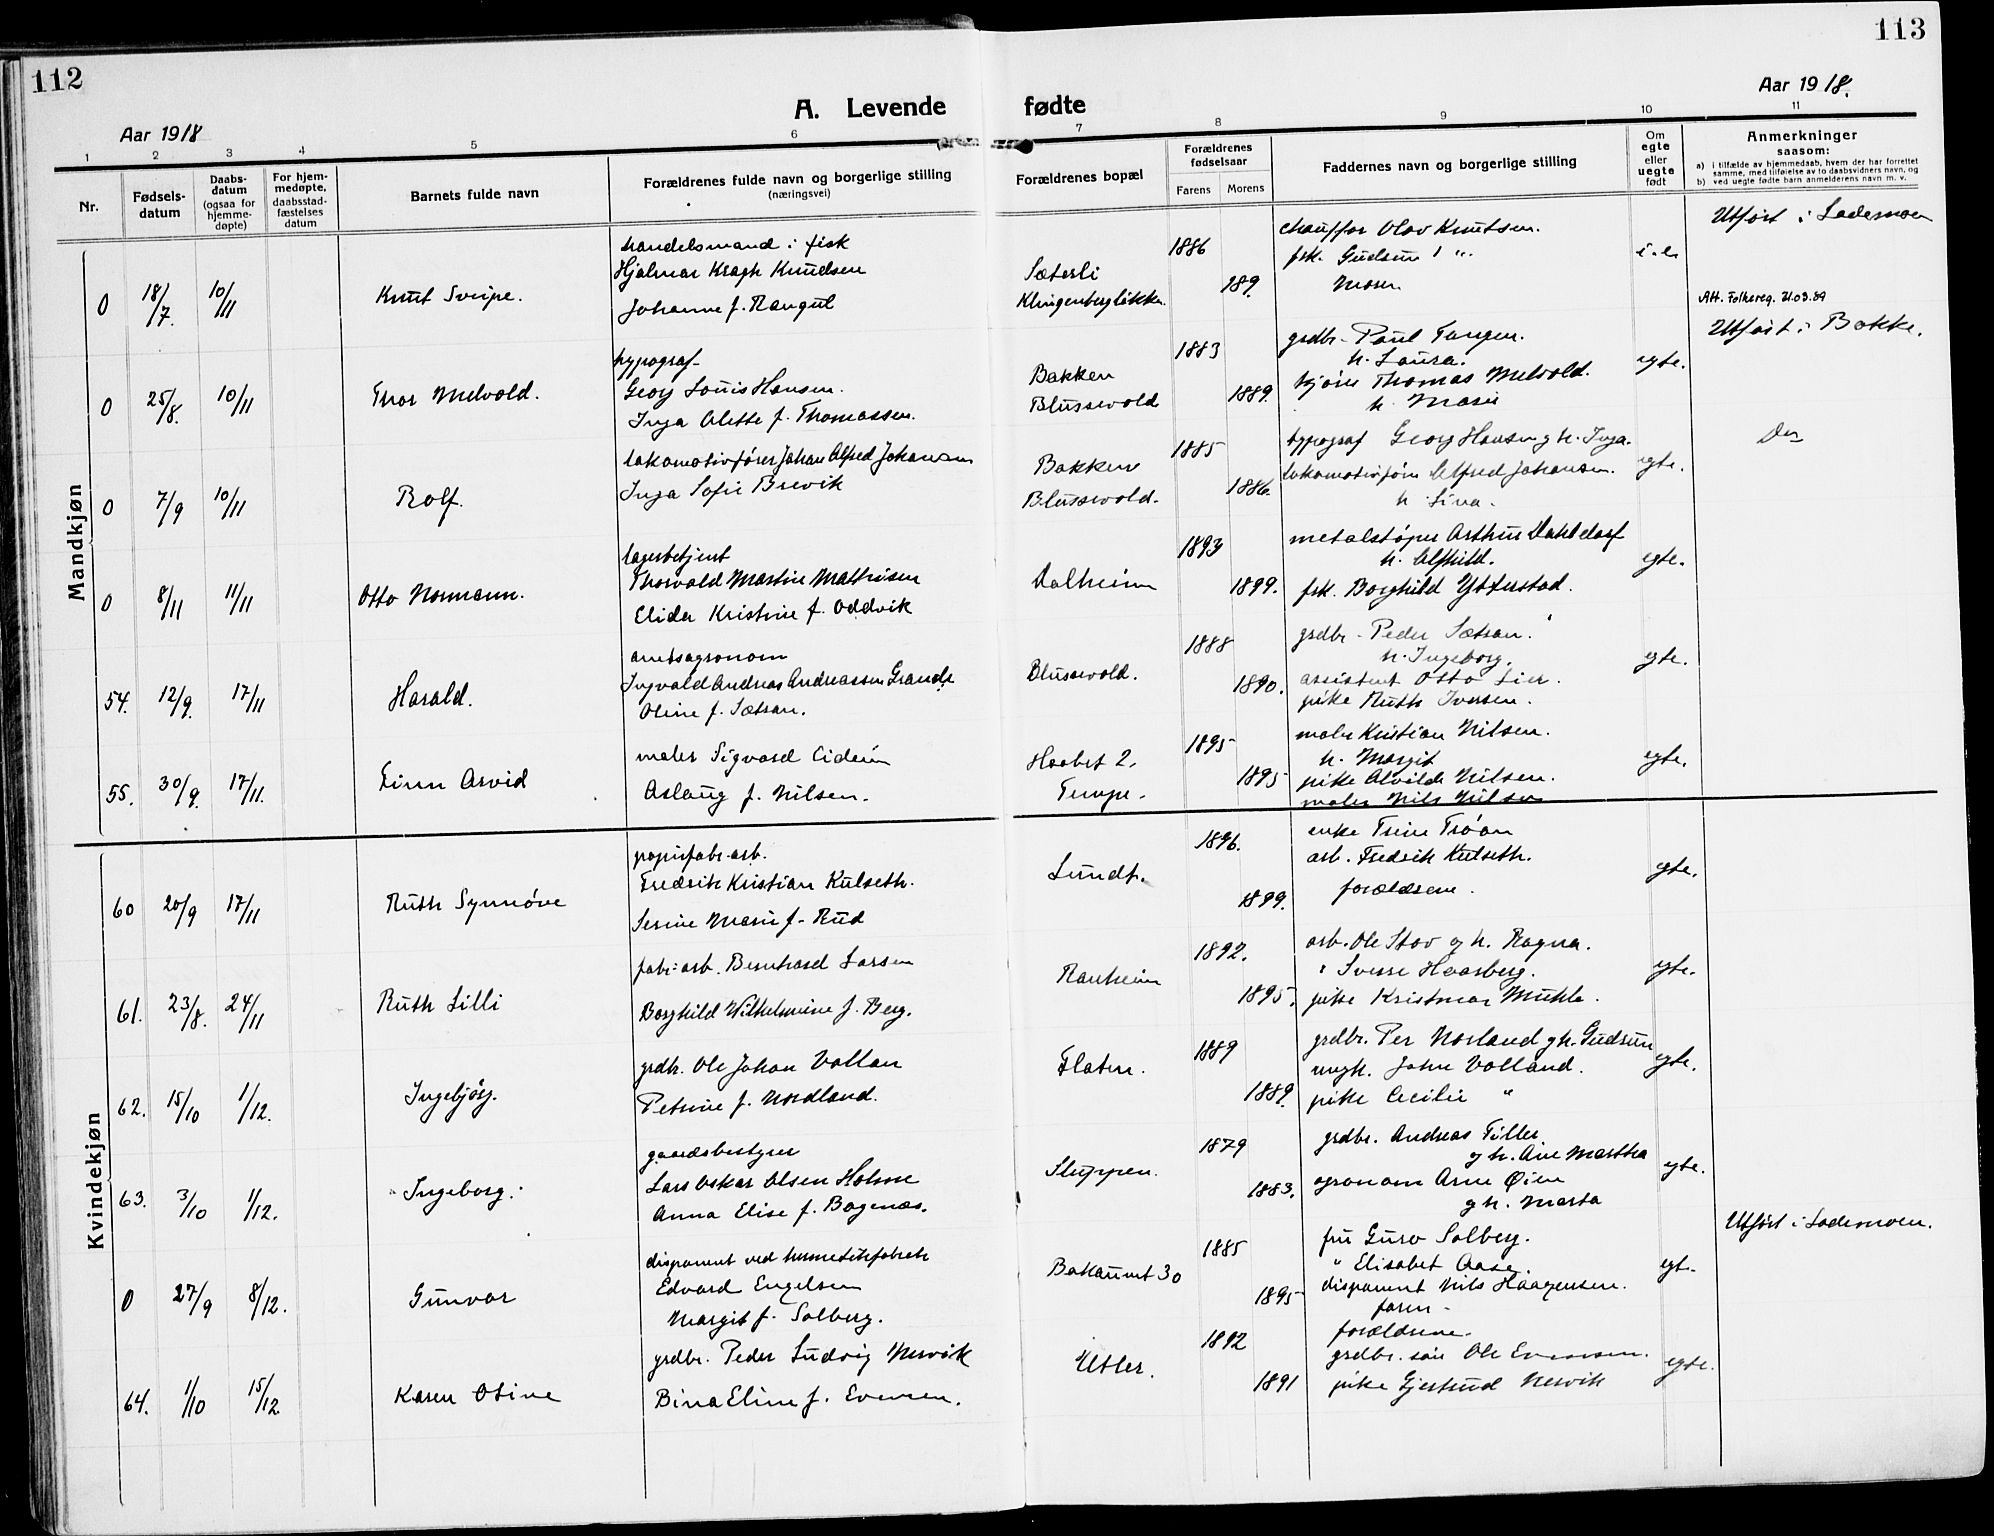 112
113
Aar 1918
A. Levende fødte
Aar 1918.
1 2 3 4 5 6 7 8 9 10 11
Nr.
Fødsels-
datum
Daabs-
datum
(ogsaa for
hjemme-
døpte)
For hjem-
medøpte,
daabsstad-
fæstelses
datum
Barnets fulde navn
Forældrenes fulde navn og borgerlige stilling
(næringsvei)
Forældrenes bopæl
Forældrenes
fødselsaar
Farens Morens
Faddernes navn og borgerlige stilling
Om
egte
eller
uegte
født
Anmerkninger
saasom:
a) i tilfælde av hjemmedaab, hvem der har forrettet
samme, med tilføielse av to daabsvidners navn, og
b) ved uegte fødte barn anmelderens navn m. v.
Mandkjøn
0 18/7. 10/11
Knut Sveipe.
handelsmand i fisk
Hjalmar Kragh Knudsen
Johanne f. Rangul
Sæterli
Klingenbergløkken
1886
189.
chauffør Olav Knutsen.
frk. Gudrun "
Moren
Utført i Lademoen
Att. Folkereg. 21.03.89
0 25/8. 10/11
Thor Melvold.
typograf
Georg Louis Hansen.
Inga Olette f. Thomassen.
Bakken
Blussevold
1883
1889.
grdbr. Paul Tangen.
h. Laura.
kjører Thomas Melvold.
h. Marie
egte.
Utført i Bakke.
0 7/9 10/11
Rolf.
lokomotivfører Johan Alfred Johansen
Inga Sofie Brevik
Bakken
Blussevold.
1885
1886.
typograf Georg Hansen og h. Inga.
lokomotivfører Alfred Johansen.
h. Lina.
egte.
Do
0 8/11 11/11
Otto Normann.
lagerbetjent
Thorvald Martin Mathisen
Elida Kristine f. Oddvik
Dalheim
1893
1899.
metalstøper Arthur Dahldorf
h. Alfhild.
frk. Borghild Ytterstad.
egte.
54. 12/9. 17/11
Harald.
amtsagronom
Ingvald Andreas Andreassen Grande
Oline f. Sætran.
Blussevold.
1888
1890.
grdbr. Peder Sætran.
h. Ingeborg.
assistent Otto Lier.
pike Ruth Iversen.
egte.
55. 30/9. 17/11.
Finn Arvid
maler Sigvard Eidem
Aslaug f. Nilsen.
Haabet 2.
Tempe.
1895
1895
maler Kristian Nilsen.
h. Margit
pike Alvilde Nilsen.
maler Nils Nilsen
egte.
Kvindekjøn
60 20/9 17/11
Ruth Synnøve
papirfabr. arb.
Fredrik Kristian Kulseth.
Serine Marie f. Rud
Lundt.
1896.
1899.
enke Trine Trøan
arb. Fredrik Kulseth.
forældrene.
egte.
61. 23/8. 24/11
Ruth Lilli
fabr. arb. Bernhard Larsen
Borghild Wilhelmine f. Berg.
Ranheim
1892.
1895.
arb. Ole Stav og h. Ragna.
" Sverre Haarberg.
pike Kristmar Muhle.
egte.
62. 15/10 1/12.
Ingebjørg.
grdbr. Ole Johan Vollan
Petrine f. Nordland.
Flaten.
1889
1889.
grdbr. Per Norland og h. Gudrun
ungk. John Volland.
pike Cecilie "
egte.
63. 3/10 1/12.
Ingeborg.
gaardsbestyrer
Lars Oskar Olsen Holme
Anna Elise f. Bogenæs.
Sluppen.
1879
1883.
grdbr. Andreas Tiller
og h. Ane Martha
agronom Arne Øien
og h. Marta
egte.
0 27/9 8/12.
Gunvor
disponent ved hermetikfabrik
Edvard Engelsen
Margit f. Solberg.
Bakaunet 30
1885
1895
fru Guro Solberg.
" Elisabet Aase.
disponent Nils Haagensen.
faren
egte
Utført i Lademoen.
64. 1/10 15/12
Karen Otine
grdbr. Peder Ludvig Nervik
Bina Eline f. Evensen.
Utler.
1892
1891
forældrene.
grdbr. søn Ole Evensen.
pike Gjertrud Nervik
egte.